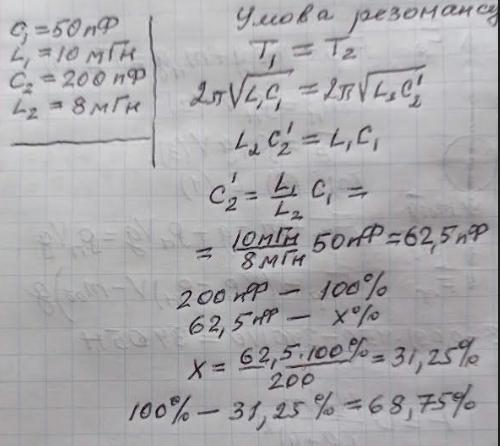 C₁ = 50 пФ
L₁ = 10 мГн
C₂ = 200 пФ
L₂ = 8 мГн
Умова резонансу
T₁ = T₂
2π√L₁C₁ = 2π√L₂C₂'
L₂C₂' = L₁C₁
C₂' = L₁/L₂ C₁ =
= 10 мГн/8 мГн 50 пФ = 62,5 пФ
200 пФ – 100%
62,5 пФ – x%
x = 62,5·100%/200 = 31,25%
100% – 31,25% = 68,75%